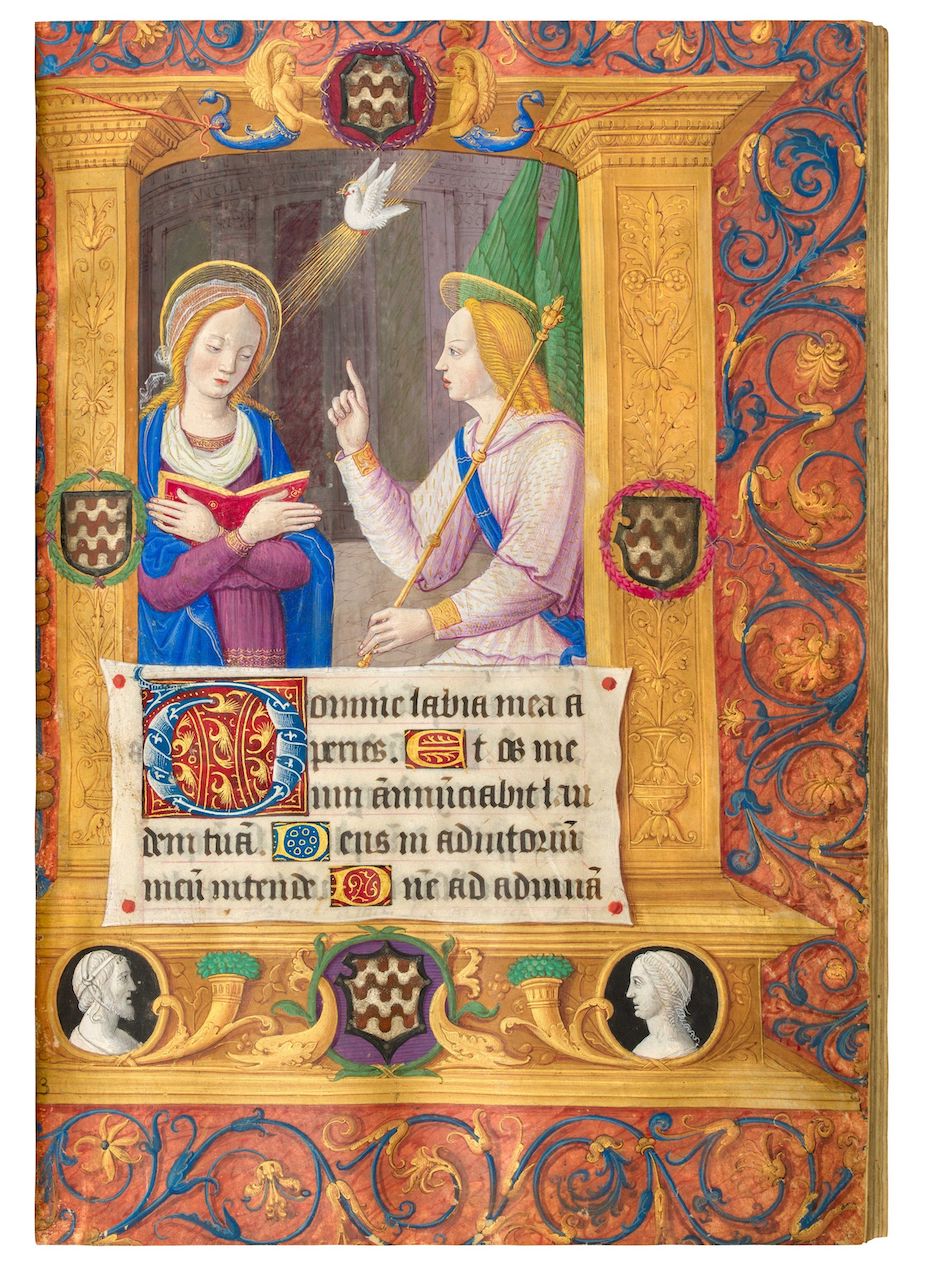 Domine labia mea a
peries. Et os me
um annūciabit lau
dem tuā. Deus in adiutoriū
meū intende Dn̄e ad adiuuā